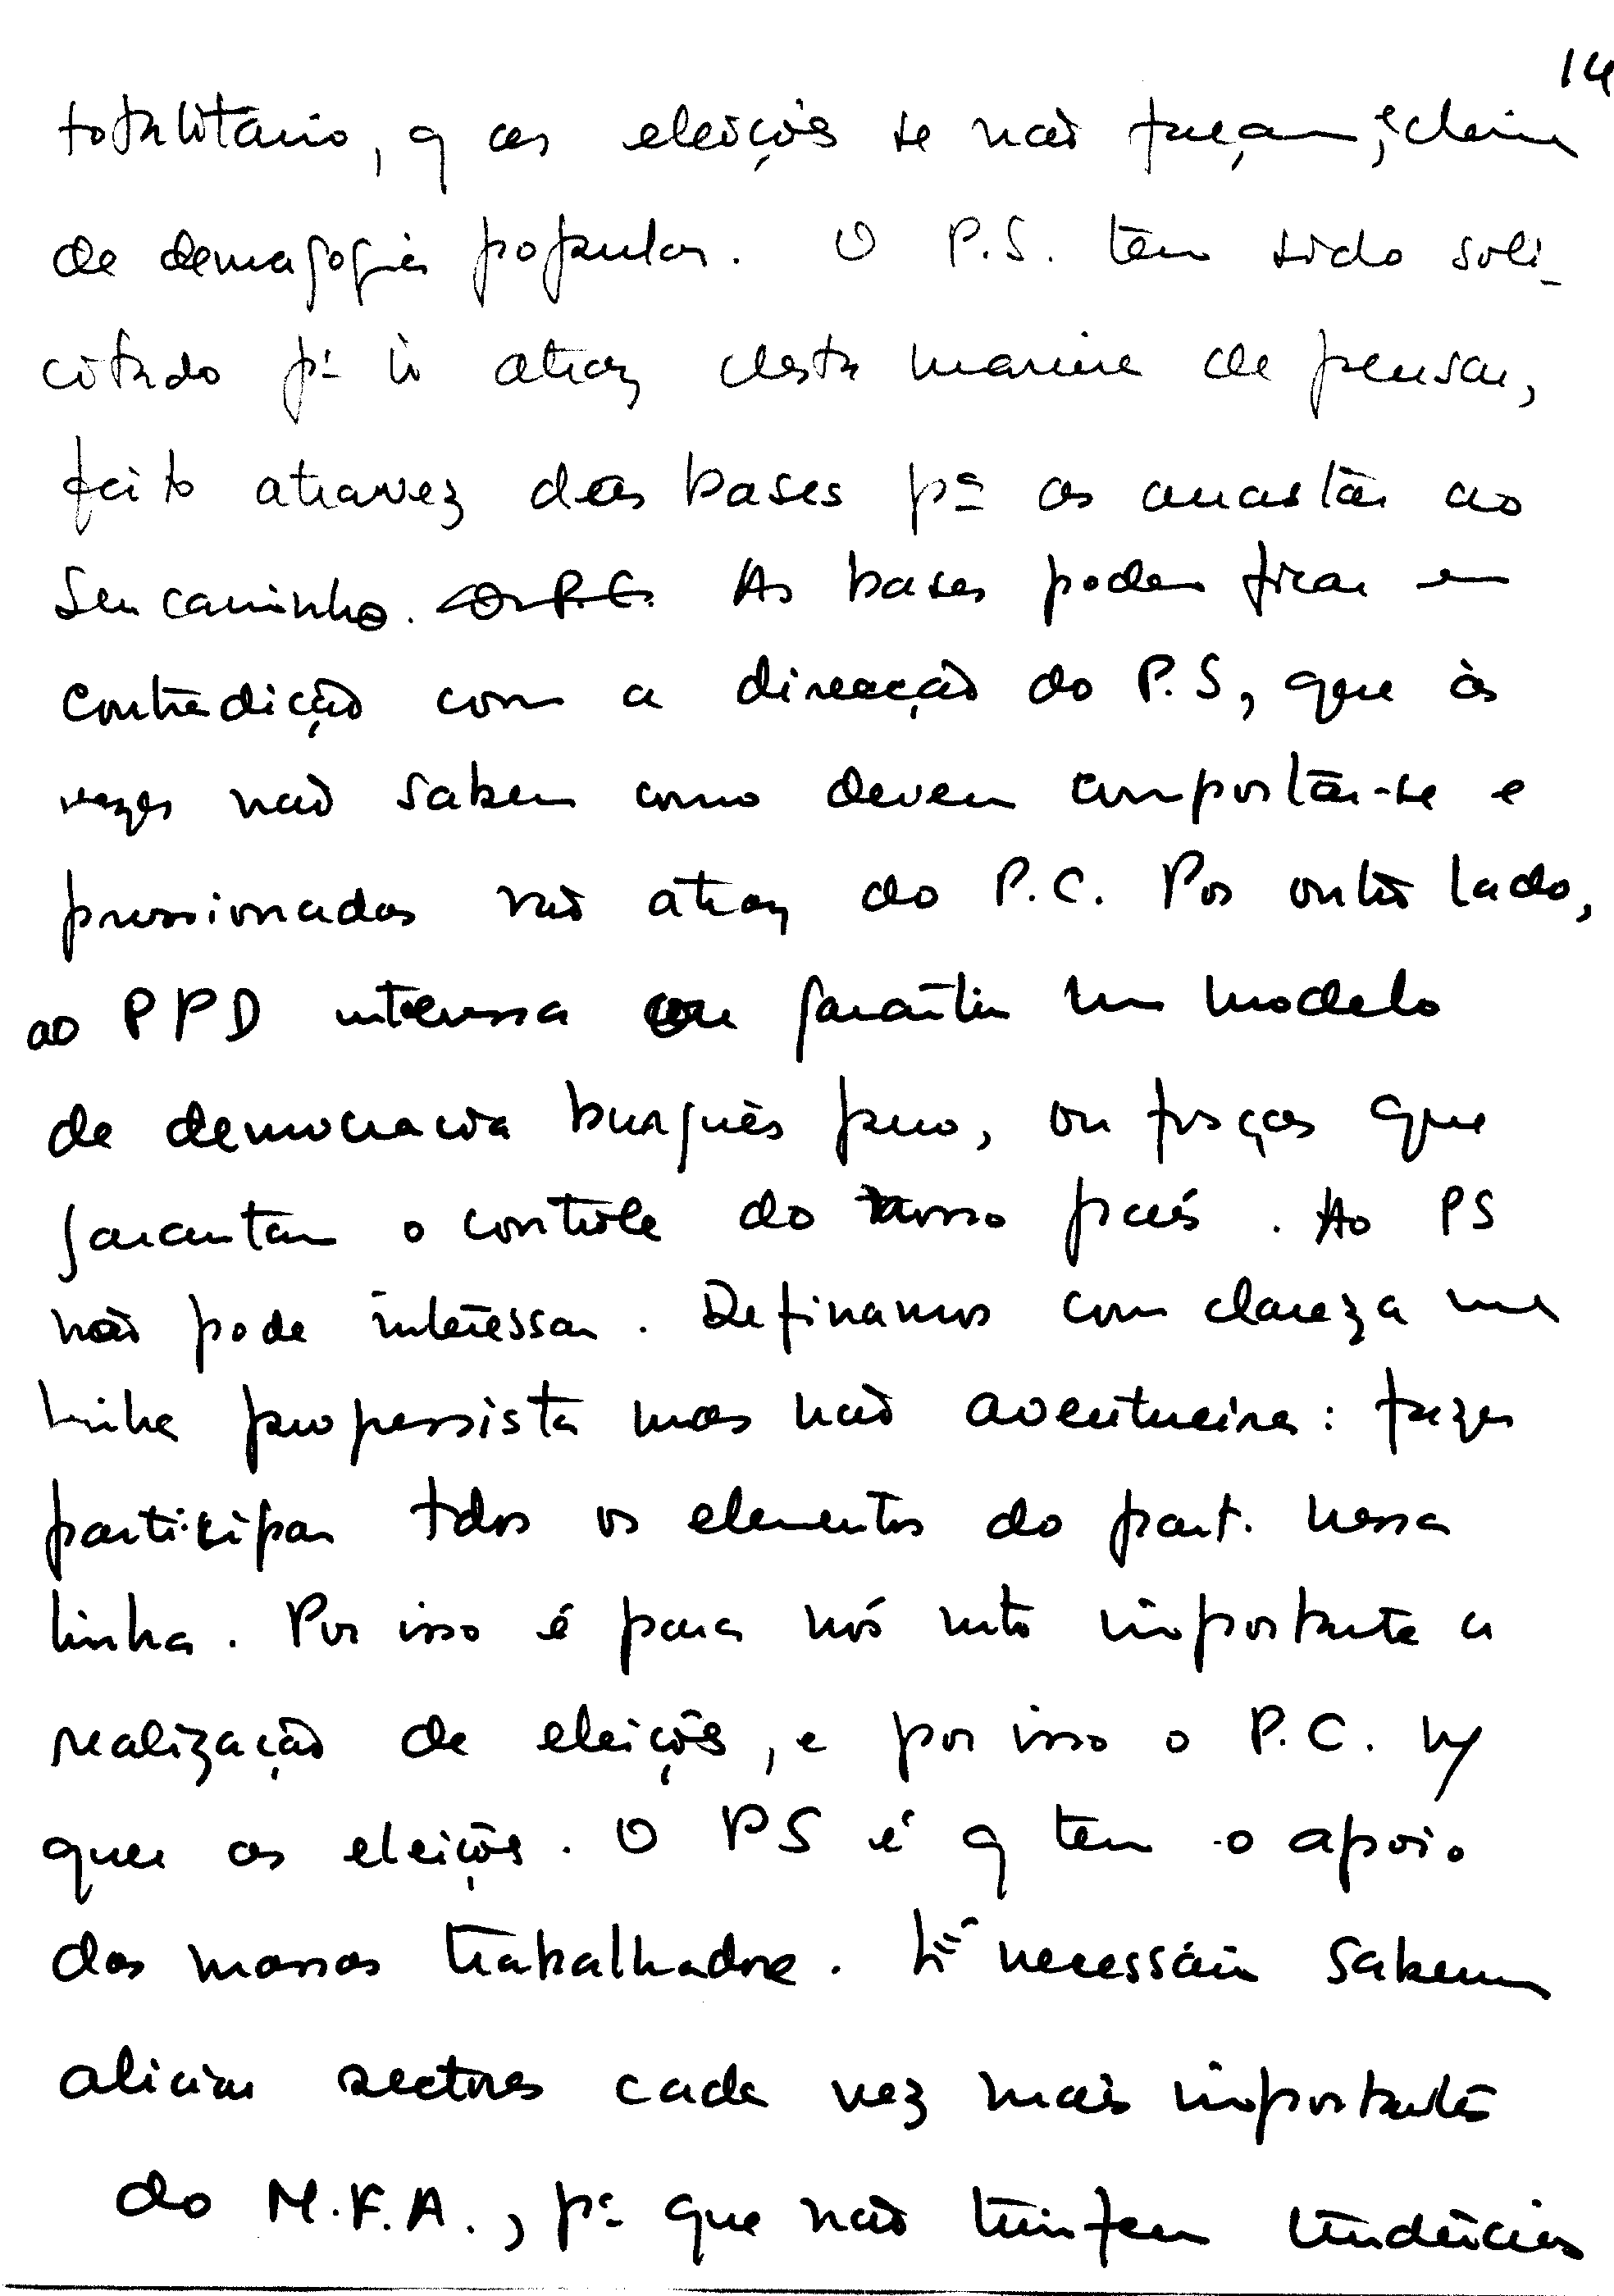 14
totalitário, q as eleições se não façam, e cheira
de demagogia popular. O P.S. tem sido soli-
citado pª ir atraz desta maneira de pensar,
feito atravez das bases pª os arrastar ao
seu caminho. O P.C. As bases podem ficar em
contradição com a direcção do P.S, que às
vezes não sabem como devem comportar-se e
pressionadas vão atraz do P.C. Por outro lado,
ao PPD interessa garantir um modelo
de democracia burguês puro, ou forças que
garantam o contrôle do nosso país. Ao PS
não pode interessar. Definamos com clareza uma
linha progressista mas não aventureira: fazer
participar todos os elementos do part. nessa
linha. Por isso é para nós mto importante a
realização de eleições, e por isso o P.C. ñ
quer as eleições. O PS é q tem o apoio
das massas trabalhadoras. É necessário sabermos
aliciar sectores cada vez mais importantes
do M.F.A., pª que não triunfem tendências